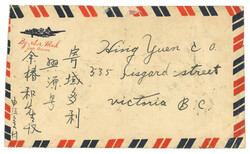 By Air Mail
Hing Yuen Co
535 Lisgard street
victoria B.C.
寄域多利
興源号
余椿和先生收